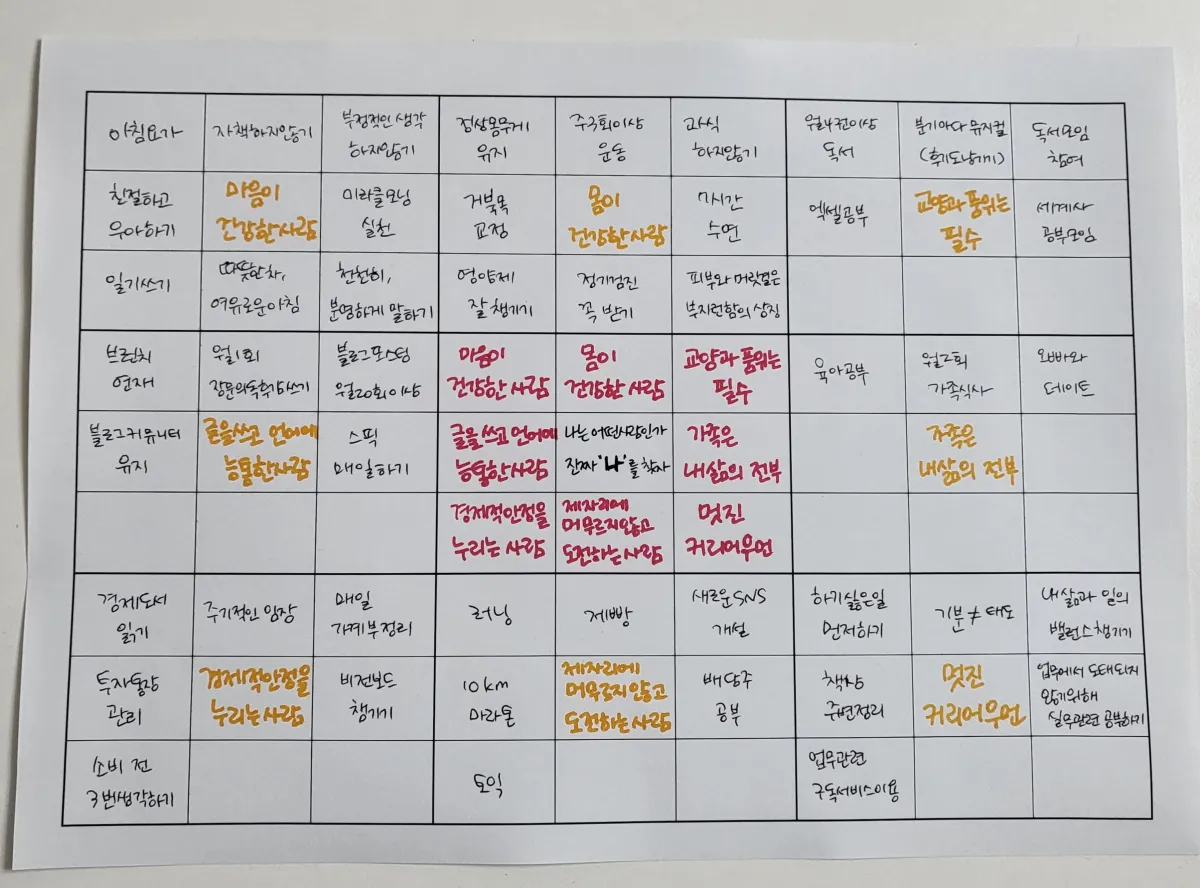 아침요가
자책하지않기
부정적인 생각
하지않기
정상몸무게
유지
주3회이상
운동
과식
하지않기
월4권이상
독서
분기마다 뮤지컬
(후기도남기기)
독서모임
참여
친절하고
우아하기
마음이
건강한사람
미라클모닝
실천
거북목
교정
몸이
건강한사람
7시간
수면
엑셀공부
교양과 품위는
필수
세계사
공부모임
일기쓰기
따뜻한차,
여유로운아침
천천히,
분명하게 말하기
영양제
잘 챙기기
정기검진
꼭 받기
피부와 머릿결은
부지런함의 상징
브런치
연재
월1회
장문의독후감쓰기
블로그 포스팅
월20회 이상
마음이
건강한 사람
몸이
건강한 사람
교양과 품위는
필수
육아공부
월2회
가족식사
오빠와
데이트
블로그커뮤니티
유지
글을쓰고 언어에
능통한사람
스픽
매일하기
글을 쓰고 언어에
능통한사람
나는 어떤사람인가
진짜 '나'를 찾자
가족은
내삶의 전부
가족은
내삶의 전부
경제적안정을
누리는 사람
제자리에
머무르지않고
도전하는 사람
멋진
커리어우먼
경제도서
읽기
주기적인 임장
매일
가계부정리
러닝
제빵
새로운 SNS
개설
하기싫은일
먼저하기
기분≠태도
내삶과 일의
밸런스챙기기
투자통장
관리
경제적안정을
누리는사람
비전보드
챙기기
10km
마라톤
제자리에
머무르지않고
도전하는사람
배당주
공부
책상
주변정리
멋진
커리어우먼
업무에서 도태되지
않기위해
실무관련 공부하기
소비 전
3번생각하기
토익
업무관련
구독서비스이용